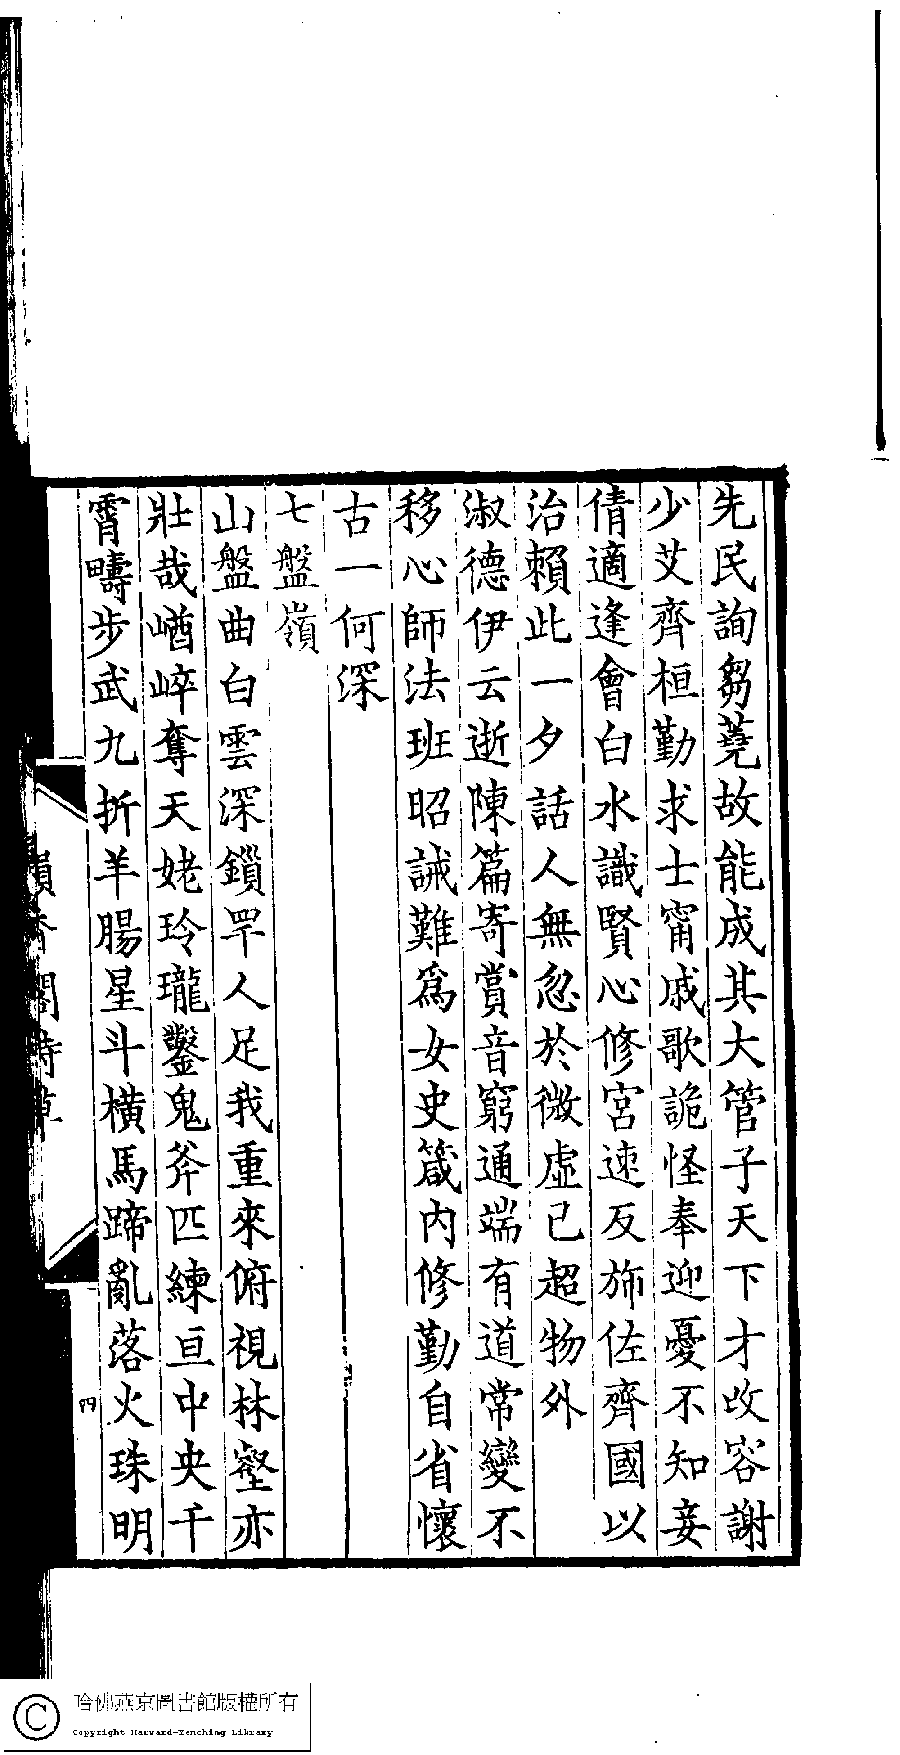 先民詢芻蕘故能成其大管子天下才改容謝
少艾齊桓勤求士甯戚歌詭怪奉迎憂不知妾
倩適逢會白水識賢心修宮速反斾佐齊國以
治賴此一夕話人無忽於微虛已超物外
淑德伊云逝陳篇寄賞音窮通端有道常變不
移心師法班昭誡難爲女史箴內修勤自省懷
古一何深
七盤嶺
山盤曲白雲深鎖罕人足我重來俯視林壑亦
壯哉崷崒奪天姥玲瓏鑿鬼斧匹練亘中央千
霄疇步武九折羊腸星斗橫馬蹄亂落火珠明
閣詩草
四
哈佛燕京圖書館版權所有
Copyright Harvard-Yenching Library